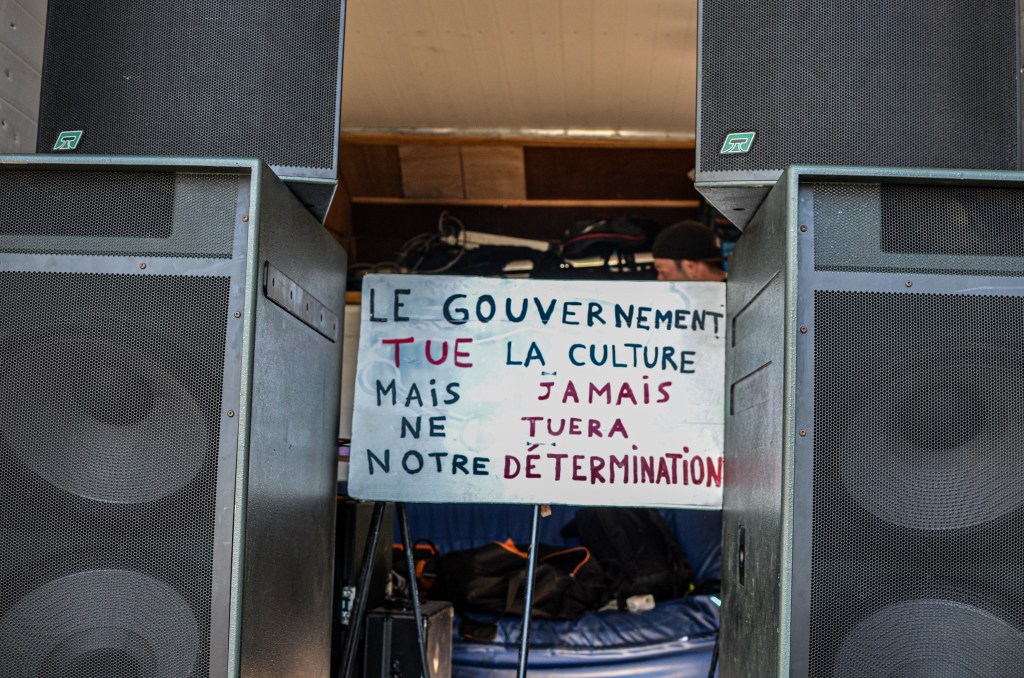 LE GOUVERNEMENT
TUE LA CULTURE
MAiS JAMAiS
NE TUERA
NOTRE DÉTERMINATION